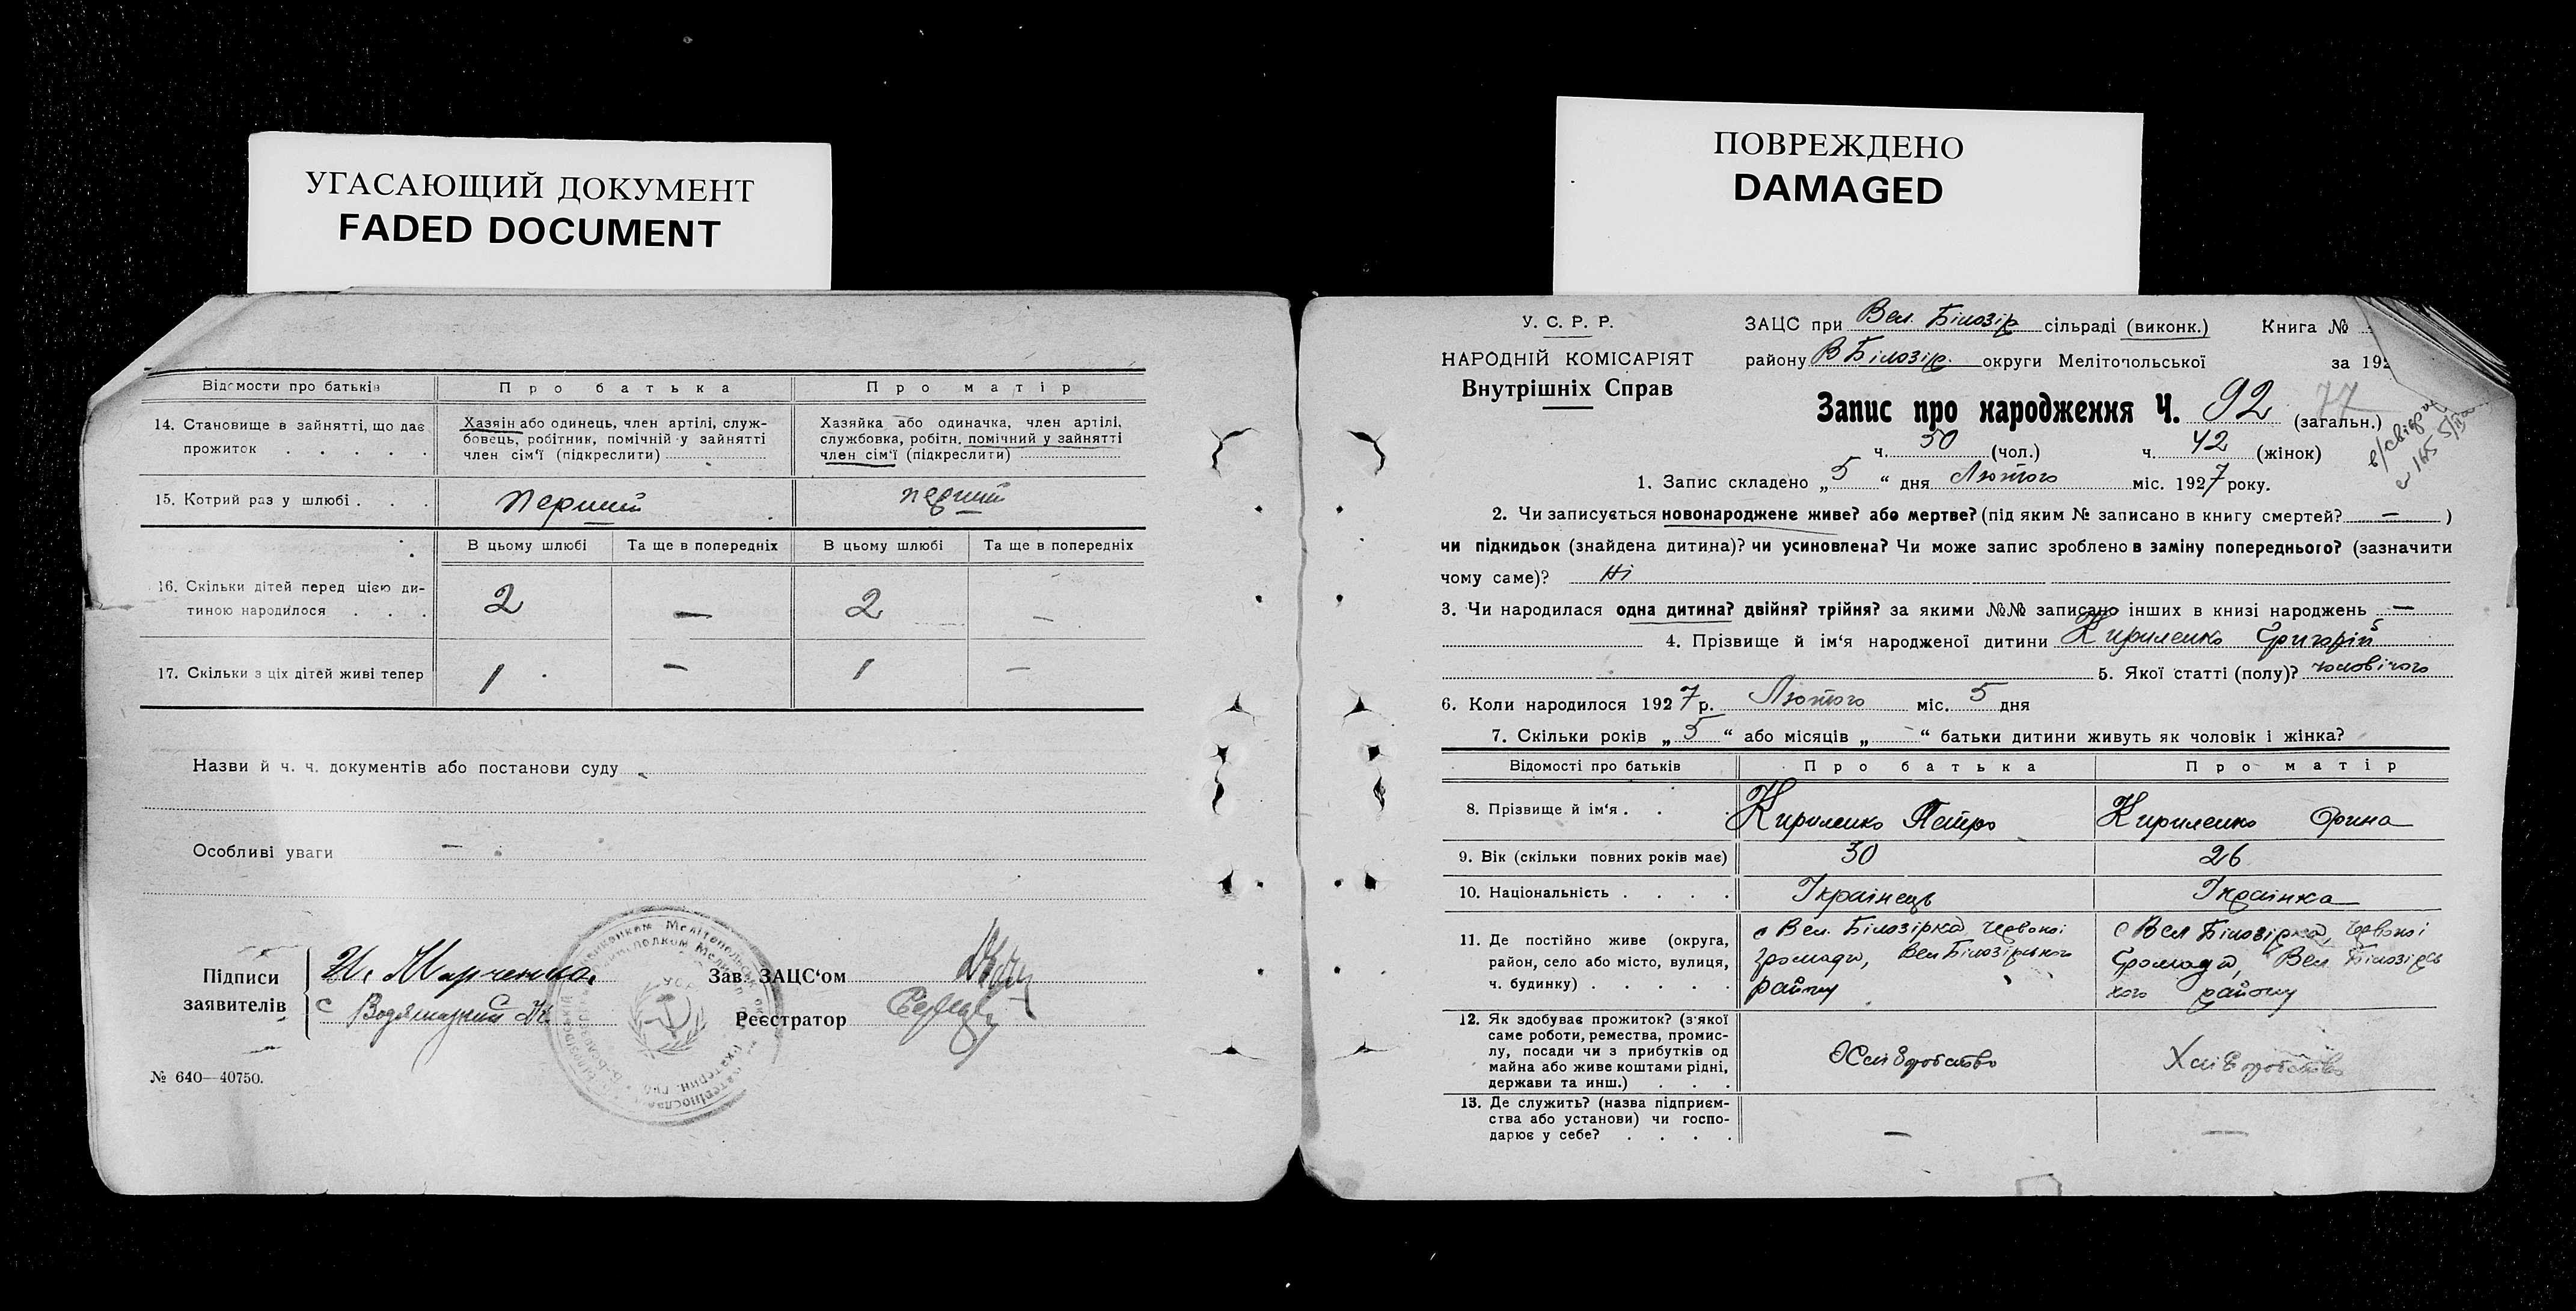 УГАСАЮЩИЙ ДОКУМЕНТ
FADED DOCUMENT
ПОВРЕЖДЕНО
DAMAGED
Відомости про батьків
Про батька
Про матір
14. Становище в зайнятті, що дає
прожиток . . . . .
Хазяін або одинець, член артілі, служ-
бовець, робітник, помічній у зайнятті
член сім'ї (підкреслити)
Хазяйка або одиначка, член артілі,
службовка, робітн. помічний у зайнятті
член сім'ї (підкреслити)
15. Котрий раз у шлюбі . . .
перший
перший
В цьому шлюбі
Та ще в попередніх
В цьому шлюбі
Та ще в попередніх
16. Скільки дітей перед цією ди-
тиною народилося . . .
2 — 2 —
17. Скільки з ціх дітей живі тепер
1 — 1 —
Назви й ч. ч. документів або постанови суду
Особливі уваги —
Підписи
заявителів
И. Марченко
с Водяницкий
Зав. ЗАЦС'ом
Реєстратор
№ 640—40750.
У. С. Р. Р.
НАРОДНІЙ КОМІСАРІЯТ
Внутрішніх Справ
ЗАЦС при Вел. Білозір сільраді (виконк.) Книга №
району В Білозір. округи Мелітопольської за 192
Запис про народження Ч. 92 (загальн.)
77
ч. 50 (чол.) ч. 42 (жінок)
1. Запис складено „5“ дня Лютого міс. 1927 року.
2. Чи записується новонароджене живе? або мертве? (під яким № записано в книгу смертей? — )
чи підкидьок (знайдена дитина)? чи усиновлена? Чи може запис зроблено в заміну попереднього? (зазначити
чому саме)? Ні
3. Чи народилася одна дитина? двійня? трійня? за якими №№ записано інших в книзі народжень —
4. Прізвище й ім'я народженої дитини Кириленко Григорій
5. Якої статті (полу)? чоловічого
6. Коли народилося 1927 р. Лютого міс. 5 дня
7. Скільки років „5“ або місяців „—“ батьки дитини живуть як чоловік і жінка?
Відомості про батьків
Про батька
Про матір
8. Прізвище й ім'я . .
Кириленко Петро
Кириленко Орина
9. Вік (скільки повних років має)
30
26
10. Національність . . . .
Ікраінець
Ікраінка
11. Де постійно живе (округа,
район, село або місто, вулиця,
ч. будинку) . . . . .
с Вел. Білозірка, Червоноі
громади, Вел Білозірського
району
с Вел Білозірка, Червоноі
Громади, Вел Білозірсь
кого району
12. Як здобуває прожиток? (з'якої
саме роботи, ремества, промис-
лу, посади чи з прибутків од
майна або живе коштами рідні,
держави та инш.) . . .
Хліборобство
Хліборобство
13. Де служить? (назва підприєм-
ства або установи) чи госпо-
дарює у себе? . . . .
—
—